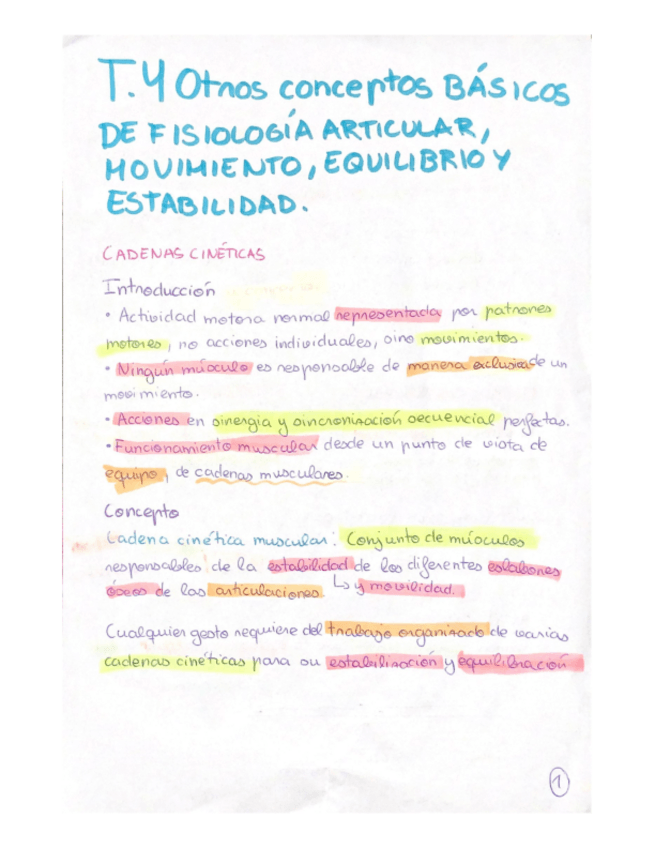 T.4 Otros conceptos BÁSICOS
DE FISIOLOGÍA ARTICULAR,
MOVIMIENTO, EQUILIBRIO Y
ESTABILIDAD.
CADENAS CINÉTICAS
Introducción
• Actividad motora normal representada por patrones
motores, no acciones individuales, sino movimientos.
• Ningún músculo es responsable de manera exclusiva de un
movimiento.
• Acciones en sinergia y sincronización secuencial perfectas.
• Funcionamiento muscular desde un punto de vista de
equipo, de cadenas musculares.
Concepto
Cadena cinética muscular: Conjunto de músculos
responsables de la estabilidad de los diferentes eslabones
óseos de las articulaciones. ↳ y movilidad.
Cualquier gesto requiere del trabajo organizado de varias
cadenas cinéticas para su estabilización y equilibración
1